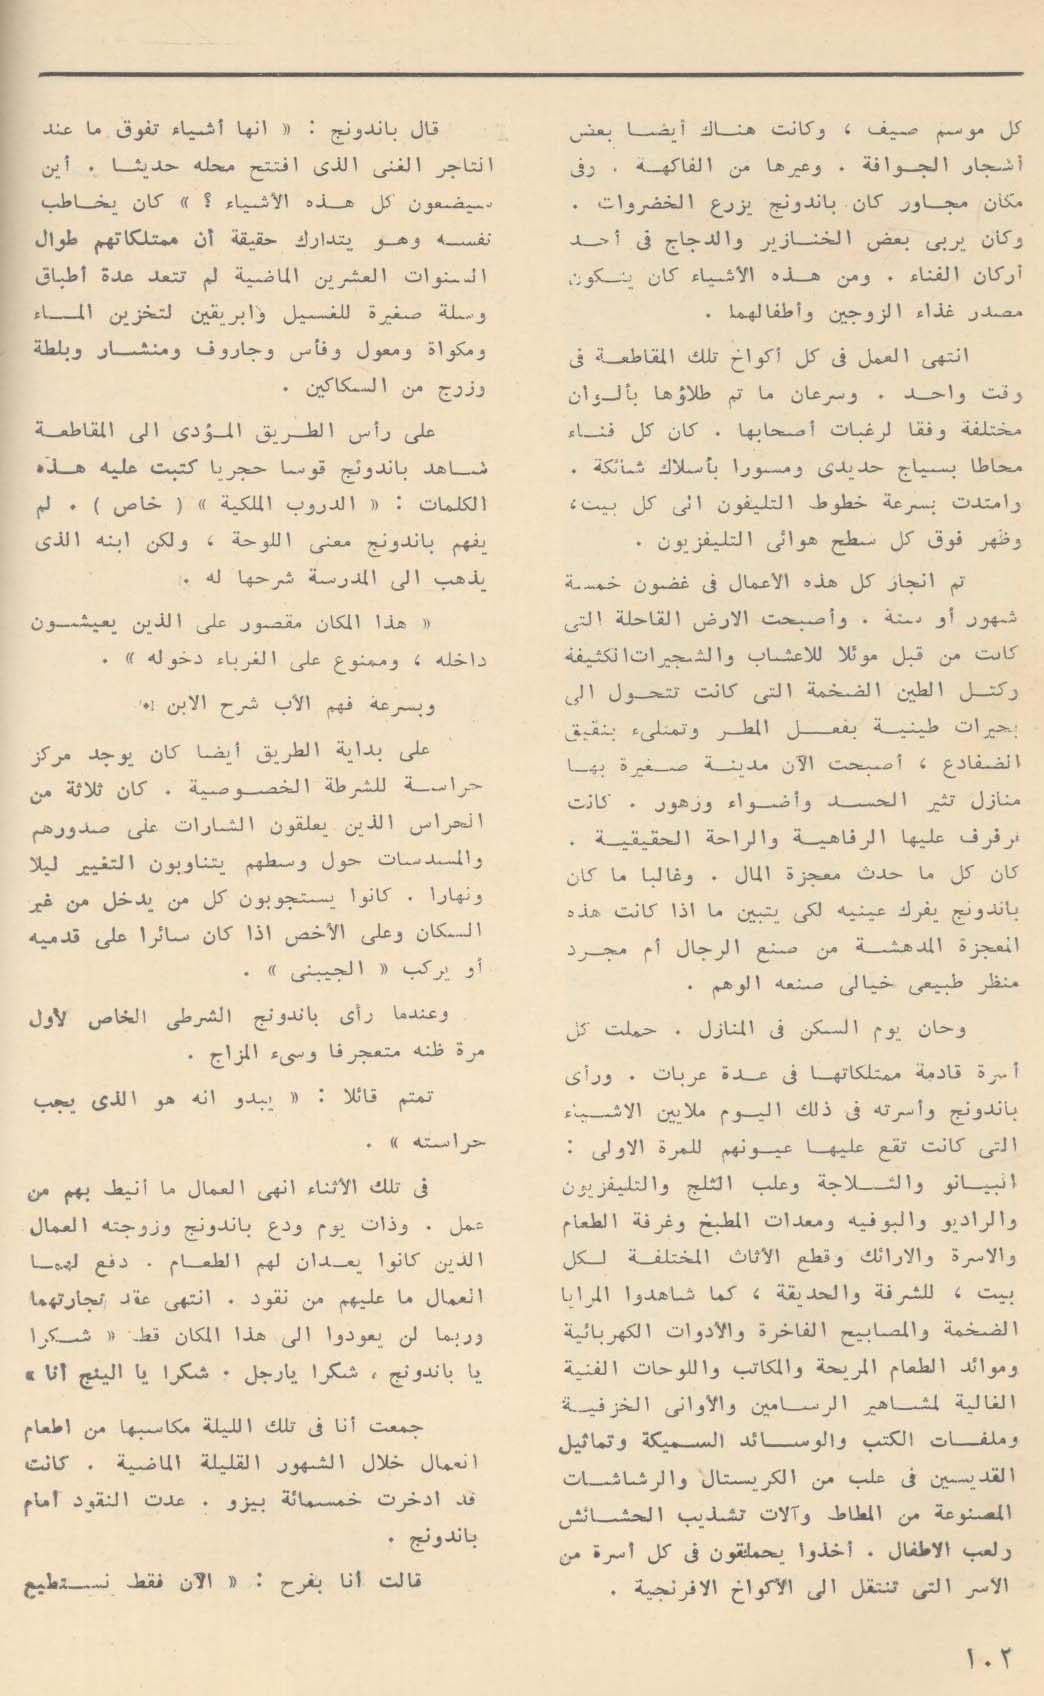 كل موسم صيف ، وكانت هناك أيضا بعض
أشجار الجوافة . وغيرها من الفاكهة . وفى
مكان مجاور كان باندونج يزرع الخضروات .
وكان يربى بعض الخنازير والدجاج فى أحد
أركان الفناء . ومن هذه الأشياء كان يتكون
مصدر غذاء الزوجين وأطفالهما .
انتهى العمل فى كل أكواخ تلك المقاطعة فى
وقت واحد . وسرعان ما تم طلاؤها بألوان
مختلفة وفقا لرغبات أصحابها . كان كل فناء
محاطا بسياج حديدى ومسورا بأسلاك شائكة .
وامتدت بسرعة خطوط التليفون الى كل بيت ،
وظهر فوق كل سطح هوائى التليفزيون .
تم انجاز كل هذه الأعمال فى غضون خمسة
شهور أو ستة . وأصبحت الارض القاحلة التى
كانت من قبل موئلا للاعشاب والشجيرات الكثيفة
وكتل الطين الضخمة التى كانت تتحول الى
بحيرات طينية بفعل المطر وتمتلىء بنقيق
الضفادع ، أصبحت الآن مدينة صغيرة بها
منازل تثير الحسد وأضواء وزهور . كانت
ترفرف عليها الرفاهية والراحة الحقيقية .
كان كل ما حدث معجزة المال . وغالبا ما كان
باندونج يفرك عينيه لكى يتبين ما اذا كانت هذه
المعجزة المدهشة من صنع الرجال أم مجرد
منظر طبيعى خيالى صنعه الوهم .
وحان يوم السكن فى المنازل . حملت كل
أسرة قادمة ممتلكاتها فى عدة عربات . ورأى
باندونج وأسرته فى ذلك اليوم ملايين الاشياء
التى كانت تقع عليها عيونهم للمرة الاولى :
البيانو والثلاجة وعلب الثلج والتليفزيون
والراديو والبوفيه ومعدات المطبخ وغرفة الطعام
والاسرة والارائك وقطع الأثاث المختلفة لكل
بيت ، للشرفة والحديقة ، كما شاهدوا المرايا
الضخمة والمصابيح الفاخرة والأدوات الكهربائية
وموائد الطعام المريحة والمكاتب واللوحات الفنية
الغالية لمشاهير الرسامين والأوانى الخزفية
وملفات الكتب والوسائد السميكة وتماثيل
القديسين فى علب من الكريستال والرشاشات
المصنوعة من المطاط وآلات تشذيب الحشائش
ولعب الاطفال . أخذوا يحملقون فى كل أسرة من
الأسر التى تنتقل الى الأكواخ الافرنجية .
قال باندونج : « انها أشياء تفوق ما عند
التاجر الغنى الذى افتتح محله حديثا . أين
سيضعون كل هذه الأشياء ؟ » كان يخاطب
نفسه وهو يتدارك حقيقة أن ممتلكاتهم طوال
السنوات العشرين الماضية لم تتعد عدة أطباق
وسلة صغيرة للغسيل وابريقين لتخزين الماء
ومكواة ومعول وفأس وجاروف ومنشار وبلطة
وزوج من السكاكين .
على رأس الطريق المؤدى الى المقاطعة
شاهد باندونج قوسا حجريا كتبت عليه هذه
الكلمات : « الدروب الملكية » ( خاص ) . لم
يفهم باندونج معنى اللوحة ، ولكن ابنه الذى
يذهب الى المدرسة شرحها له .
« هذا المكان مقصور على الذين يعيشون
داخله ، وممنوع على الغرباء دخوله » .
وبسرعة فهم الأب شرح الابن .
على بداية الطريق أيضا كان يوجد مركز
حراسة للشرطة الخصوصية . كان ثلاثة من
الحراس الذين يعلقون الشارات على صدورهم
والمسدسات حول وسطهم يتناوبون التغيير ليلا
ونهارا . كانوا يستجوبون كل من يدخل من غير
السكان وعلى الأخص اذا كان سائرا على قدميه
أو يركب « الجيبنى » .
وعندما رأى باندونج الشرطى الخاص لأول
مرة ظنه متعجرفا وسىء المزاج .
تمتم قائلا : « يبدو انه هو الذى يجب
حراسته » .
فى تلك الأثناء انهى العمال ما أنيط بهم من
عمل . وذات يوم ودع باندونج وزوجته العمال
الذين كانوا يعدان لهم الطعام . دفع لهما
العمال ما عليهم من نقود . انتهى عقد تجارتهما
وربما لن يعودوا الى هذا المكان قط « شكرا
يا باندونج ، شكرا يارجل . شكرا يا الينج أنا »
جمعت أنا فى تلك الليلة مكاسبها من اطعام
العمال خلال الشهور القليلة الماضية . كانت
قد ادخرت خمسمائة بيزو . عدت النقود أمام
باندونج .
قالت أنا بفرح : « الآن فقط نستطيع
١٠٢